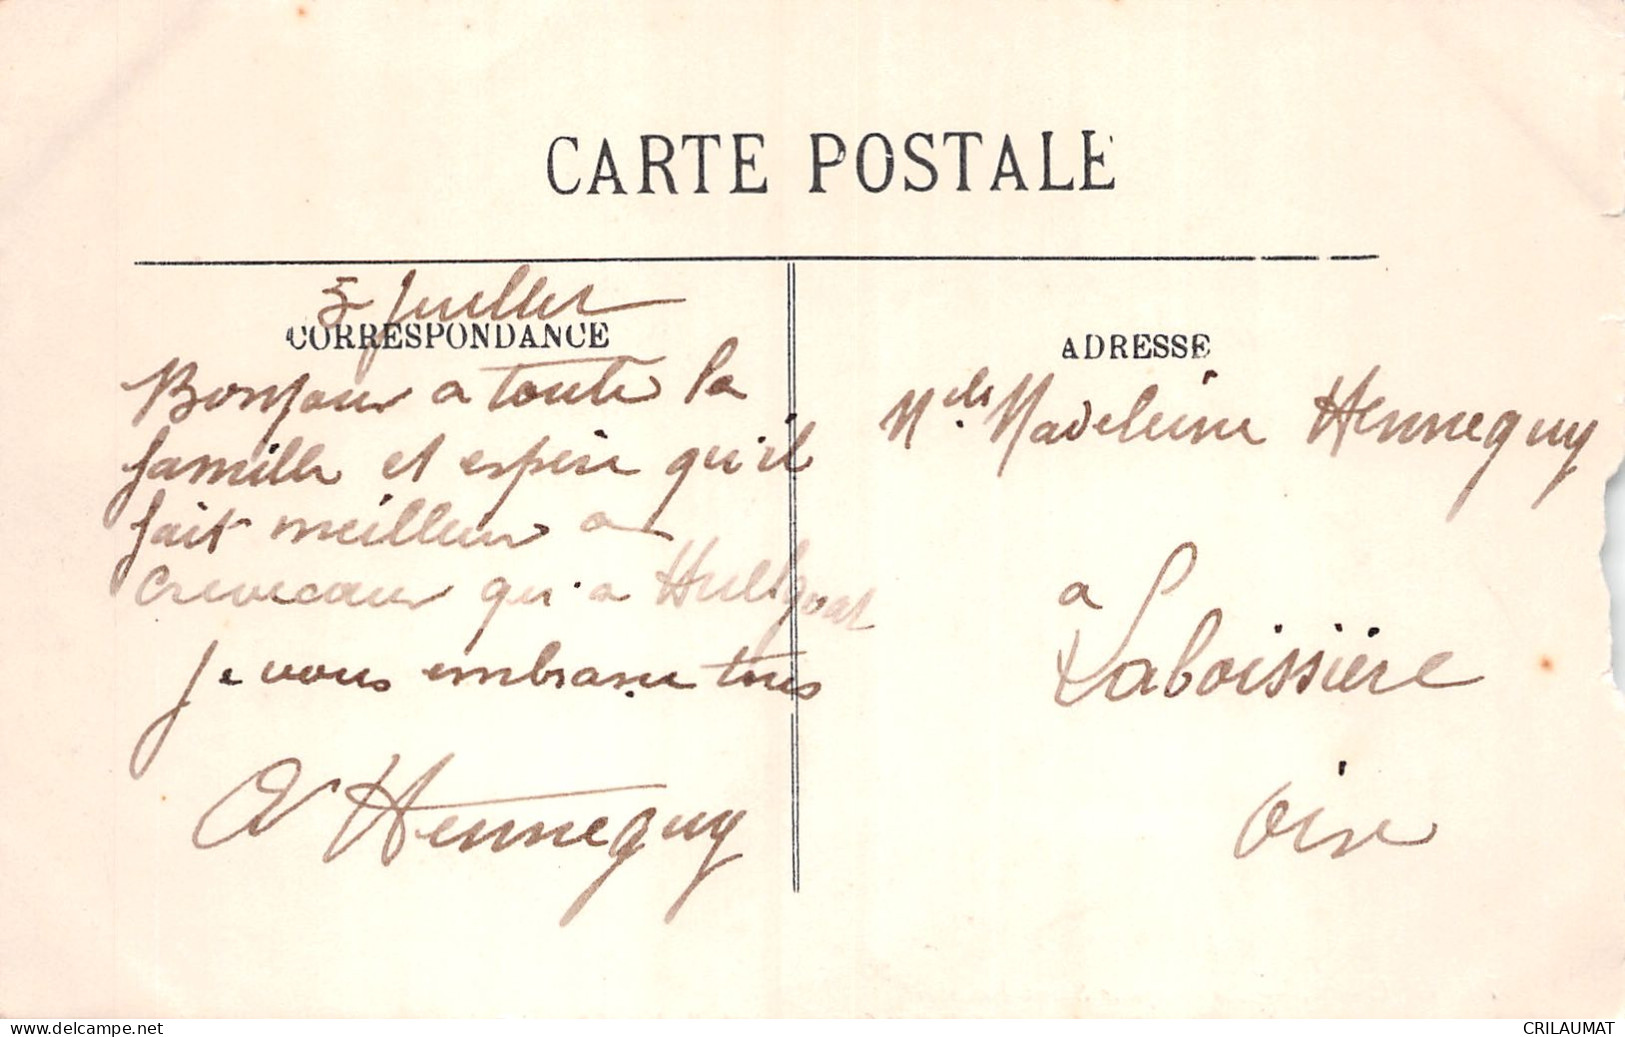 CARTE POSTALE
5 Juillet
CORRESPONDANCE
Bonjour a toute la
famille et espère qu'il
fait meilleur a
Crevecoeur qu'a Huelgoat
Je vous embrasse tous
A Hennequy
ADRESSE
Melle Madeleine Hennequy
a
Laboissière
Oise
www.delcampe.net
CRILAUMAT